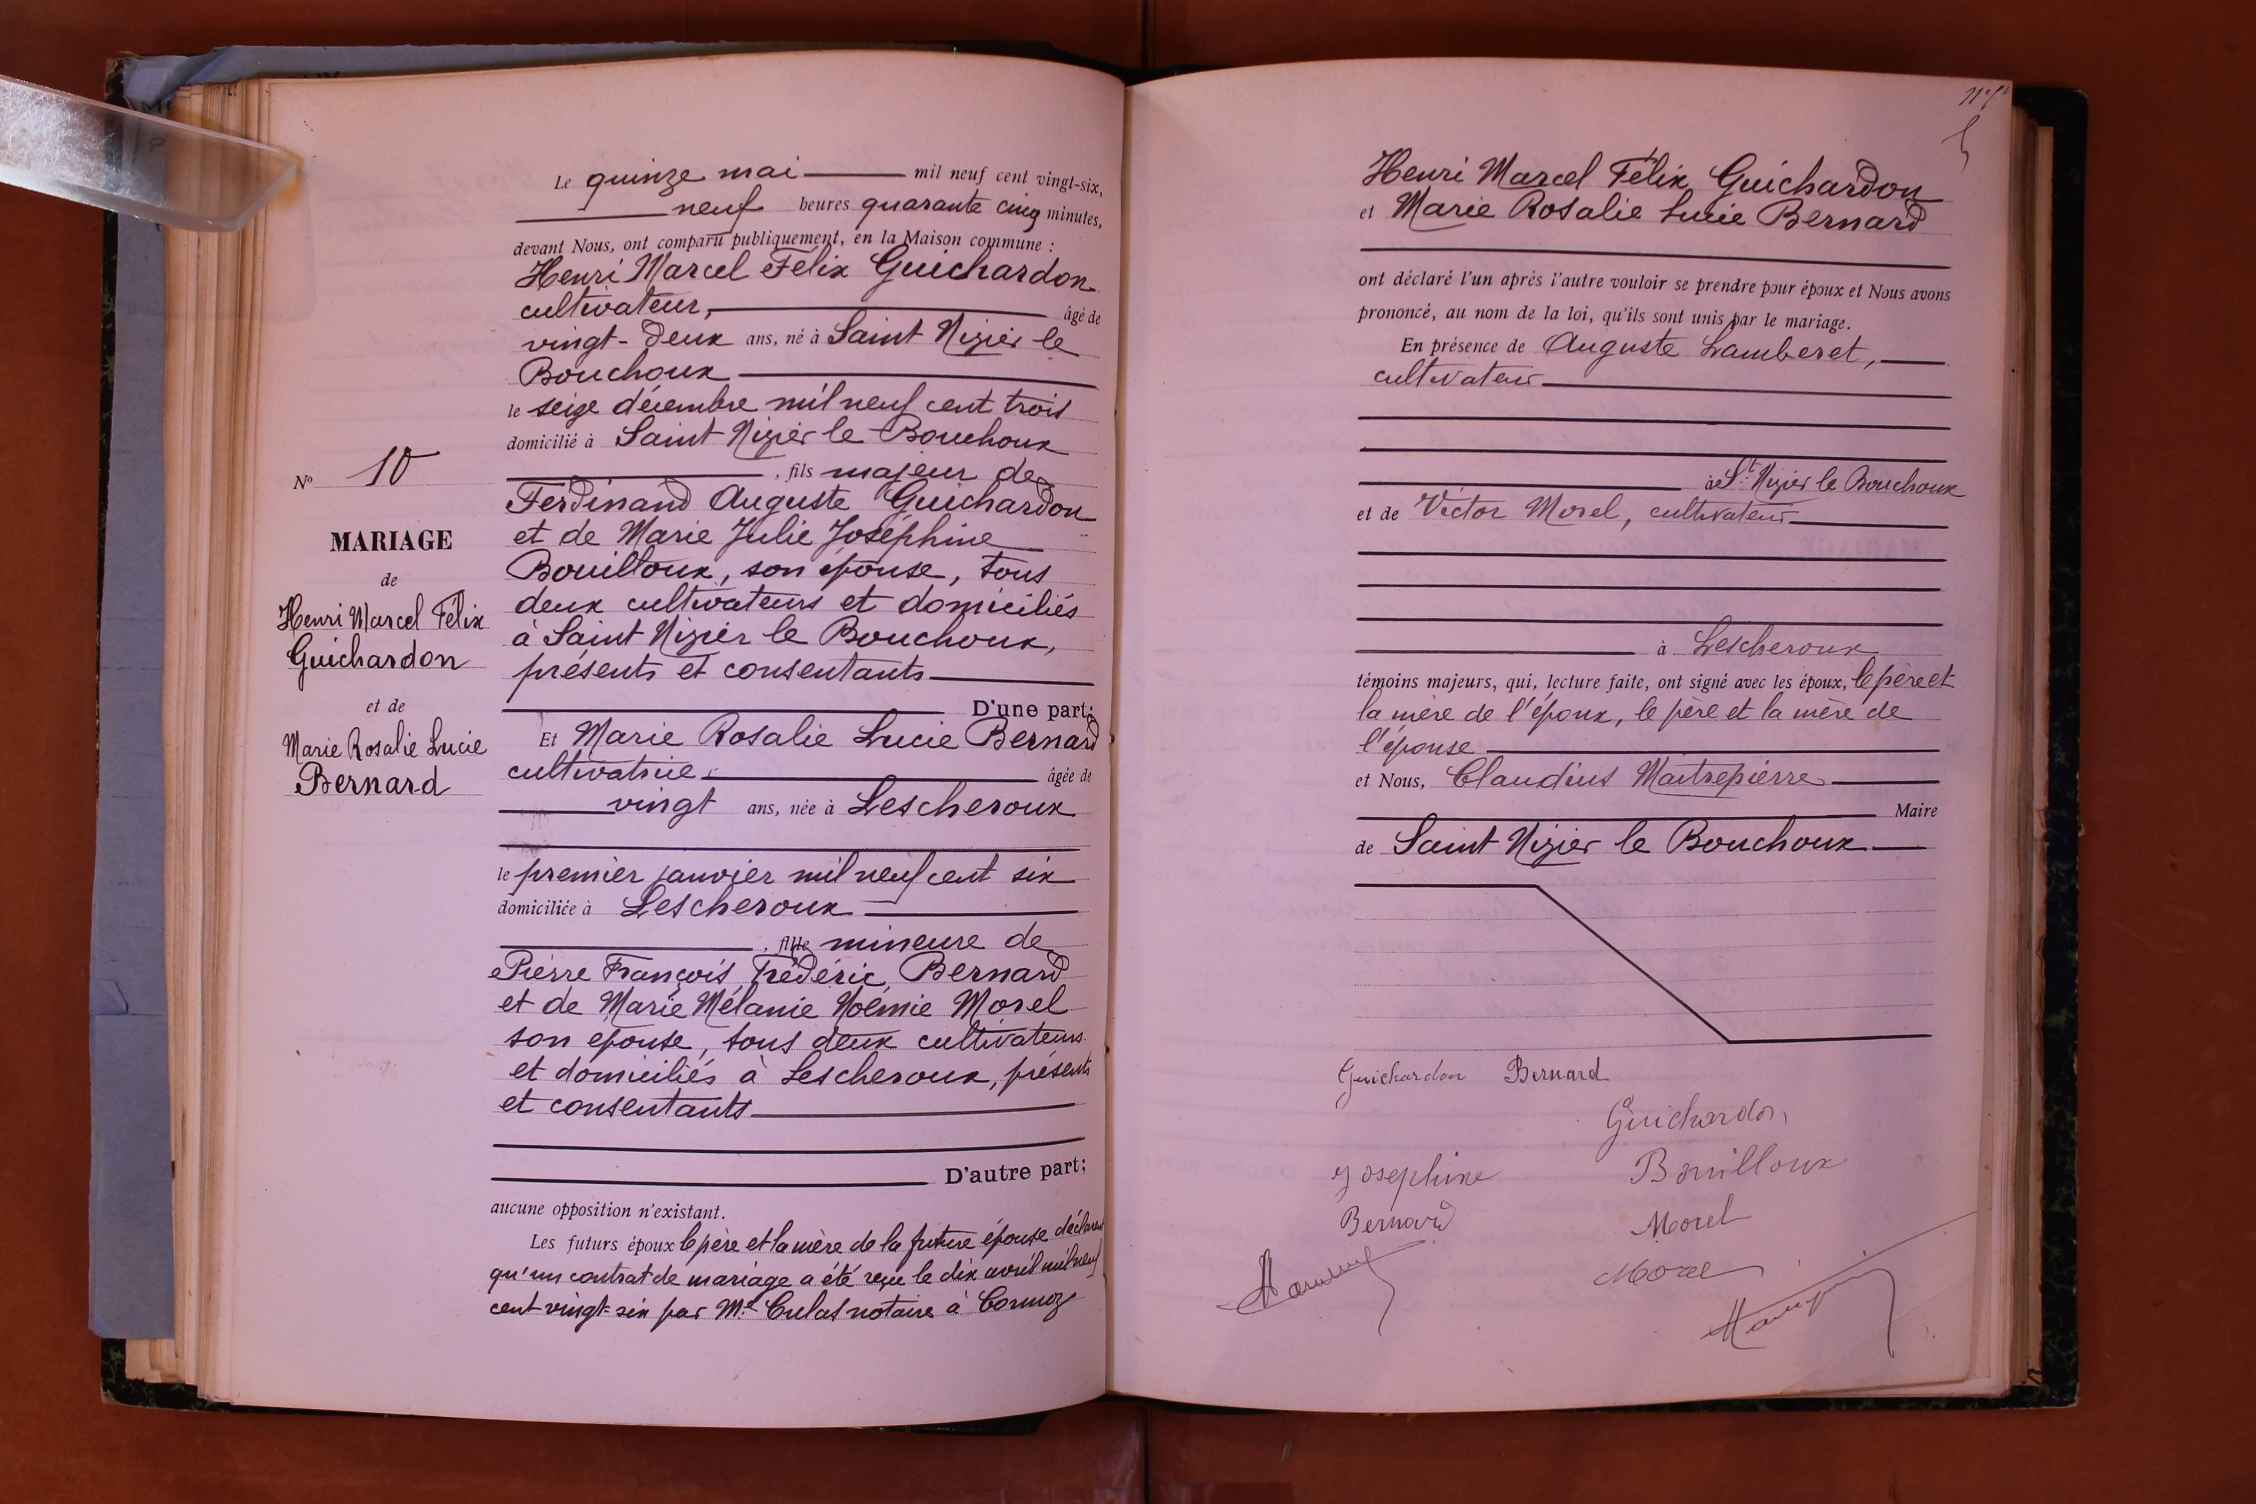 Le quinze mai mil neuf cent vingt-six,
neuf heures quarante cinq minutes,
devant Nous, ont comparu publiquement, en la Maison commune :
Henri Marcel Félix Guichardon
cultivateur, âgé de
vingt-deux ans, né à Saint Nizier le
Bouchoux
le seize décembre mil neuf cent trois
domicilié à Saint Nizier le Bouchoux
, fils majeur de
Ferdinand Auguste Guichardon
et de Marie Julie Joséphine
Bouilloux, son épouse, tous
deux cultivateurs et domiciliés
à Saint Nizier le Bouchoux,
présents et consentants
D'une part;
Et Marie Rosalie Lucie Bernard
cultivatrice, âgée de
vingt ans, née à Lescheroux
le premier janvier mil neuf cent six
domiciliée à Lescheroux
, fille mineure de
Pierre François Frédéric Bernard
et de Marie Mélanie Noémie Morel
son epouse, tous deux cultivateurs
et domiciliés à Lescheroux, présents
et consentants
D'autre part;
aucune opposition n'existant.
Les futurs époux le père et la mère de la future épouse déclarent
qu'un contrat de mariage a été reçu le dix avril mil neuf
cent vingt-six par Me Culas notaire à Cormoz
No 10
MARIAGE
de
Henri Marcel Félix
Guichardon
et de
Marie Rosalie Lucie
Bernard
Henri Marcel Félix Guichardon
et Marie Rosalie Lucie Bernard
ont déclaré l'un après l'autre vouloir se prendre pour époux et Nous avons
prononcé, au nom de la loi, qu'ils sont unis par le mariage.
En présence de Auguste Lamberet,
cultivateur
à St Nizier le Bouchoux
et de Victor Morel, cultivateur
à Lescheroux
témoins majeurs, qui, lecture faite, ont signé avec les époux, le père et
la mère de l'époux, le père et la mère de
l'épouse
et Nous, Claudius Maitrepierre
Maire
de Saint Nizier le Bouchoux
Guichardon Bernard
Guichardon
Josephine Bouilloux
Bernard Morel
Morel